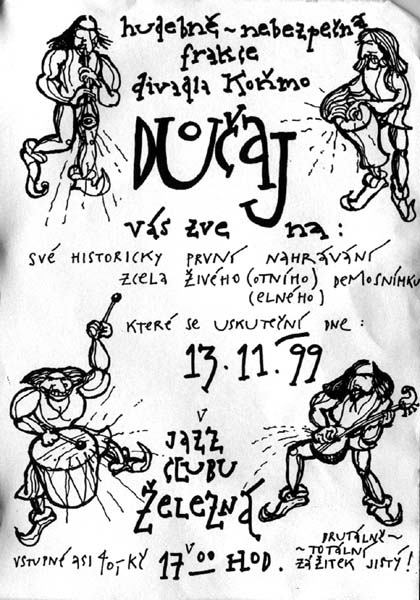 hudebně~nebezpečná
frakce
divadla Kořimo
DUJČAJ
vás zve na:
SVÉ HISTORICKY PRVNÍ NAHRÁVÁNÍ
ZCELA ŽIVÉHO (OTNÍHO) DEMOSNÍMKU
(ELNÉHO)
KTERÉ SE USKUTEČNÍ DNE:
13.11.99
V
JAZZ
CLUBU
ŽELEZNÁ
VSTUPNÉ ASI 40,-KČ
V 17⁰⁰ HOD.
BRUTÁLNĚ~
~TOTÁLNÍ
ZÁŽITEK JISTÝ!